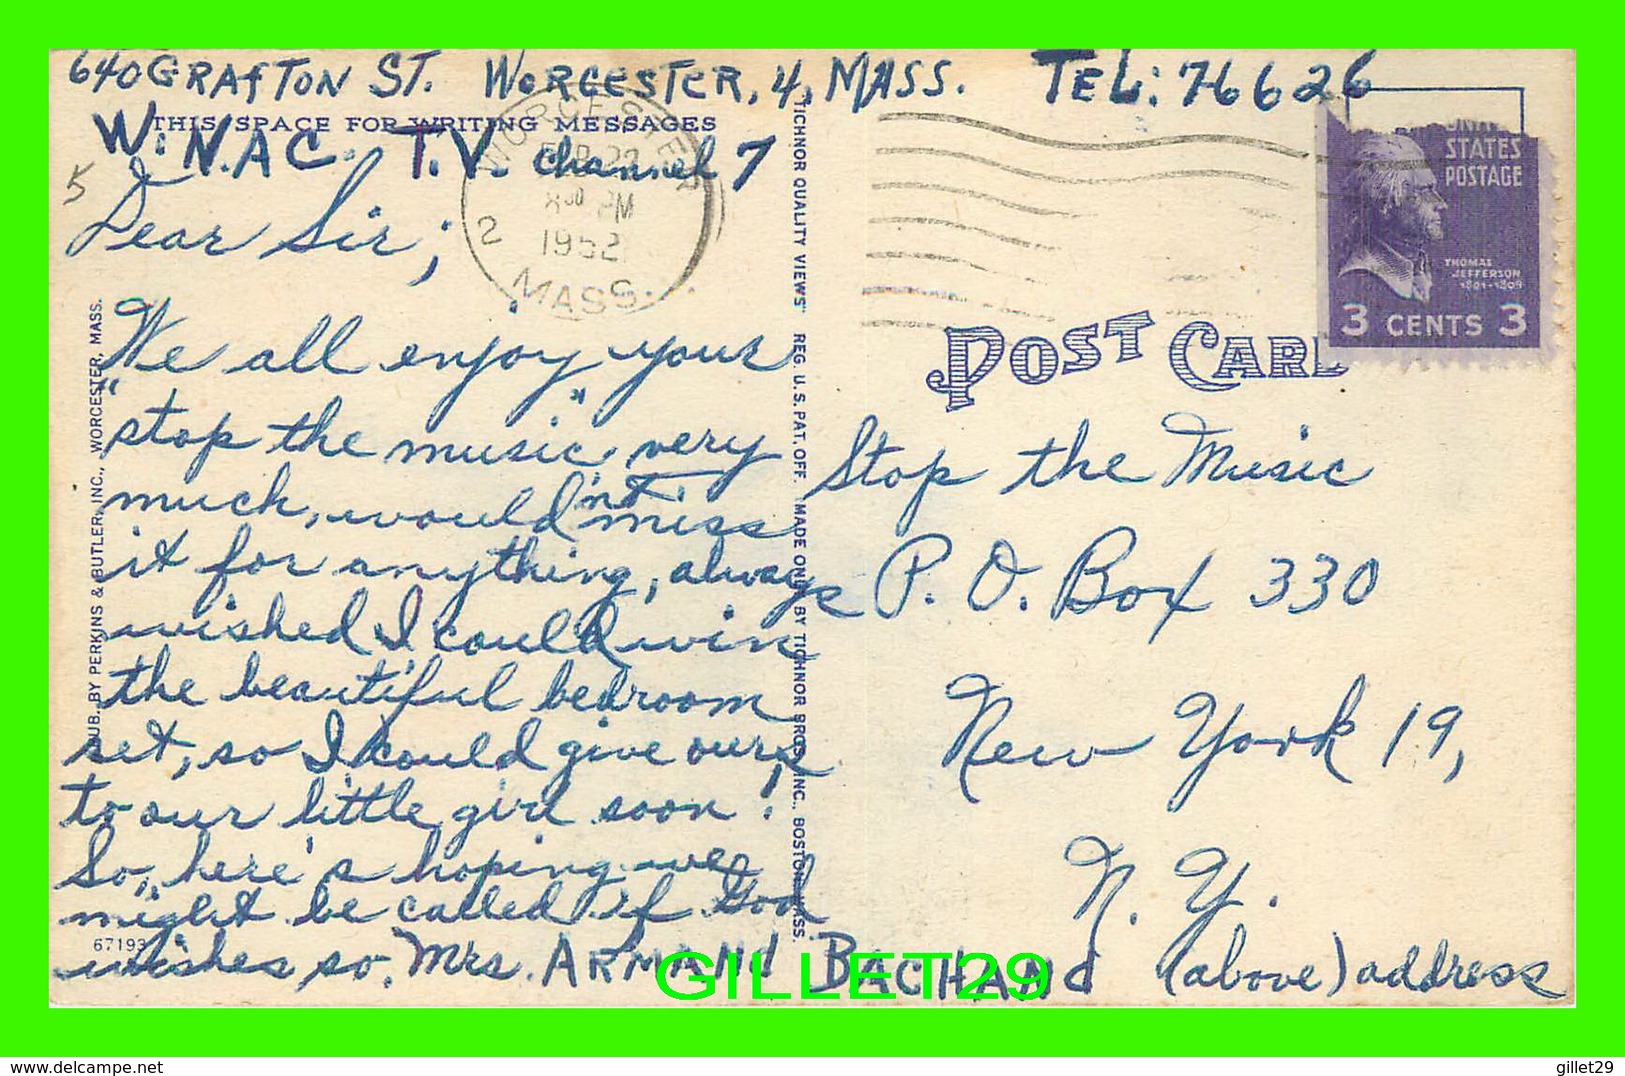 640 GRAfTON ST. WORCESTER, 4, MASS. TEL: 76626
THIS SPACE FOR WRITING MESSAGES
W.N.A.C. T.V. channel 7
5
Dear Sir;
We all enjoy your
"stop the music," very
much, wouldn't miss
it for anything, always
wished I could win
the beautiful bedroom
set, so I could give ours,
to our little girl soon!
So, here's hoping we
might be called if God
wishes so. Mrs. ARMANd BACHANd (above) address
67193
PUB. BY PERKINS & BUTLER, INC., WORCESTER, MASS.
"TICHNOR QUALITY VIEWS" REG. U. S. PAT. OFF. MADE ONLY BY TICHNOR BROS., INC., BOSTON, MASS.
WORCESTER
FEB 22
8 30 PM
2 1952
MASS.
UNITED
STATES
POSTAGE
THOMAS
JEFFERSON
1801-1809
3 CENTS 3
POST CARD
Stop the Music
P. O. Box 330
New York 19,
N. Y.
GILLET29
delcampe.net
gillet29